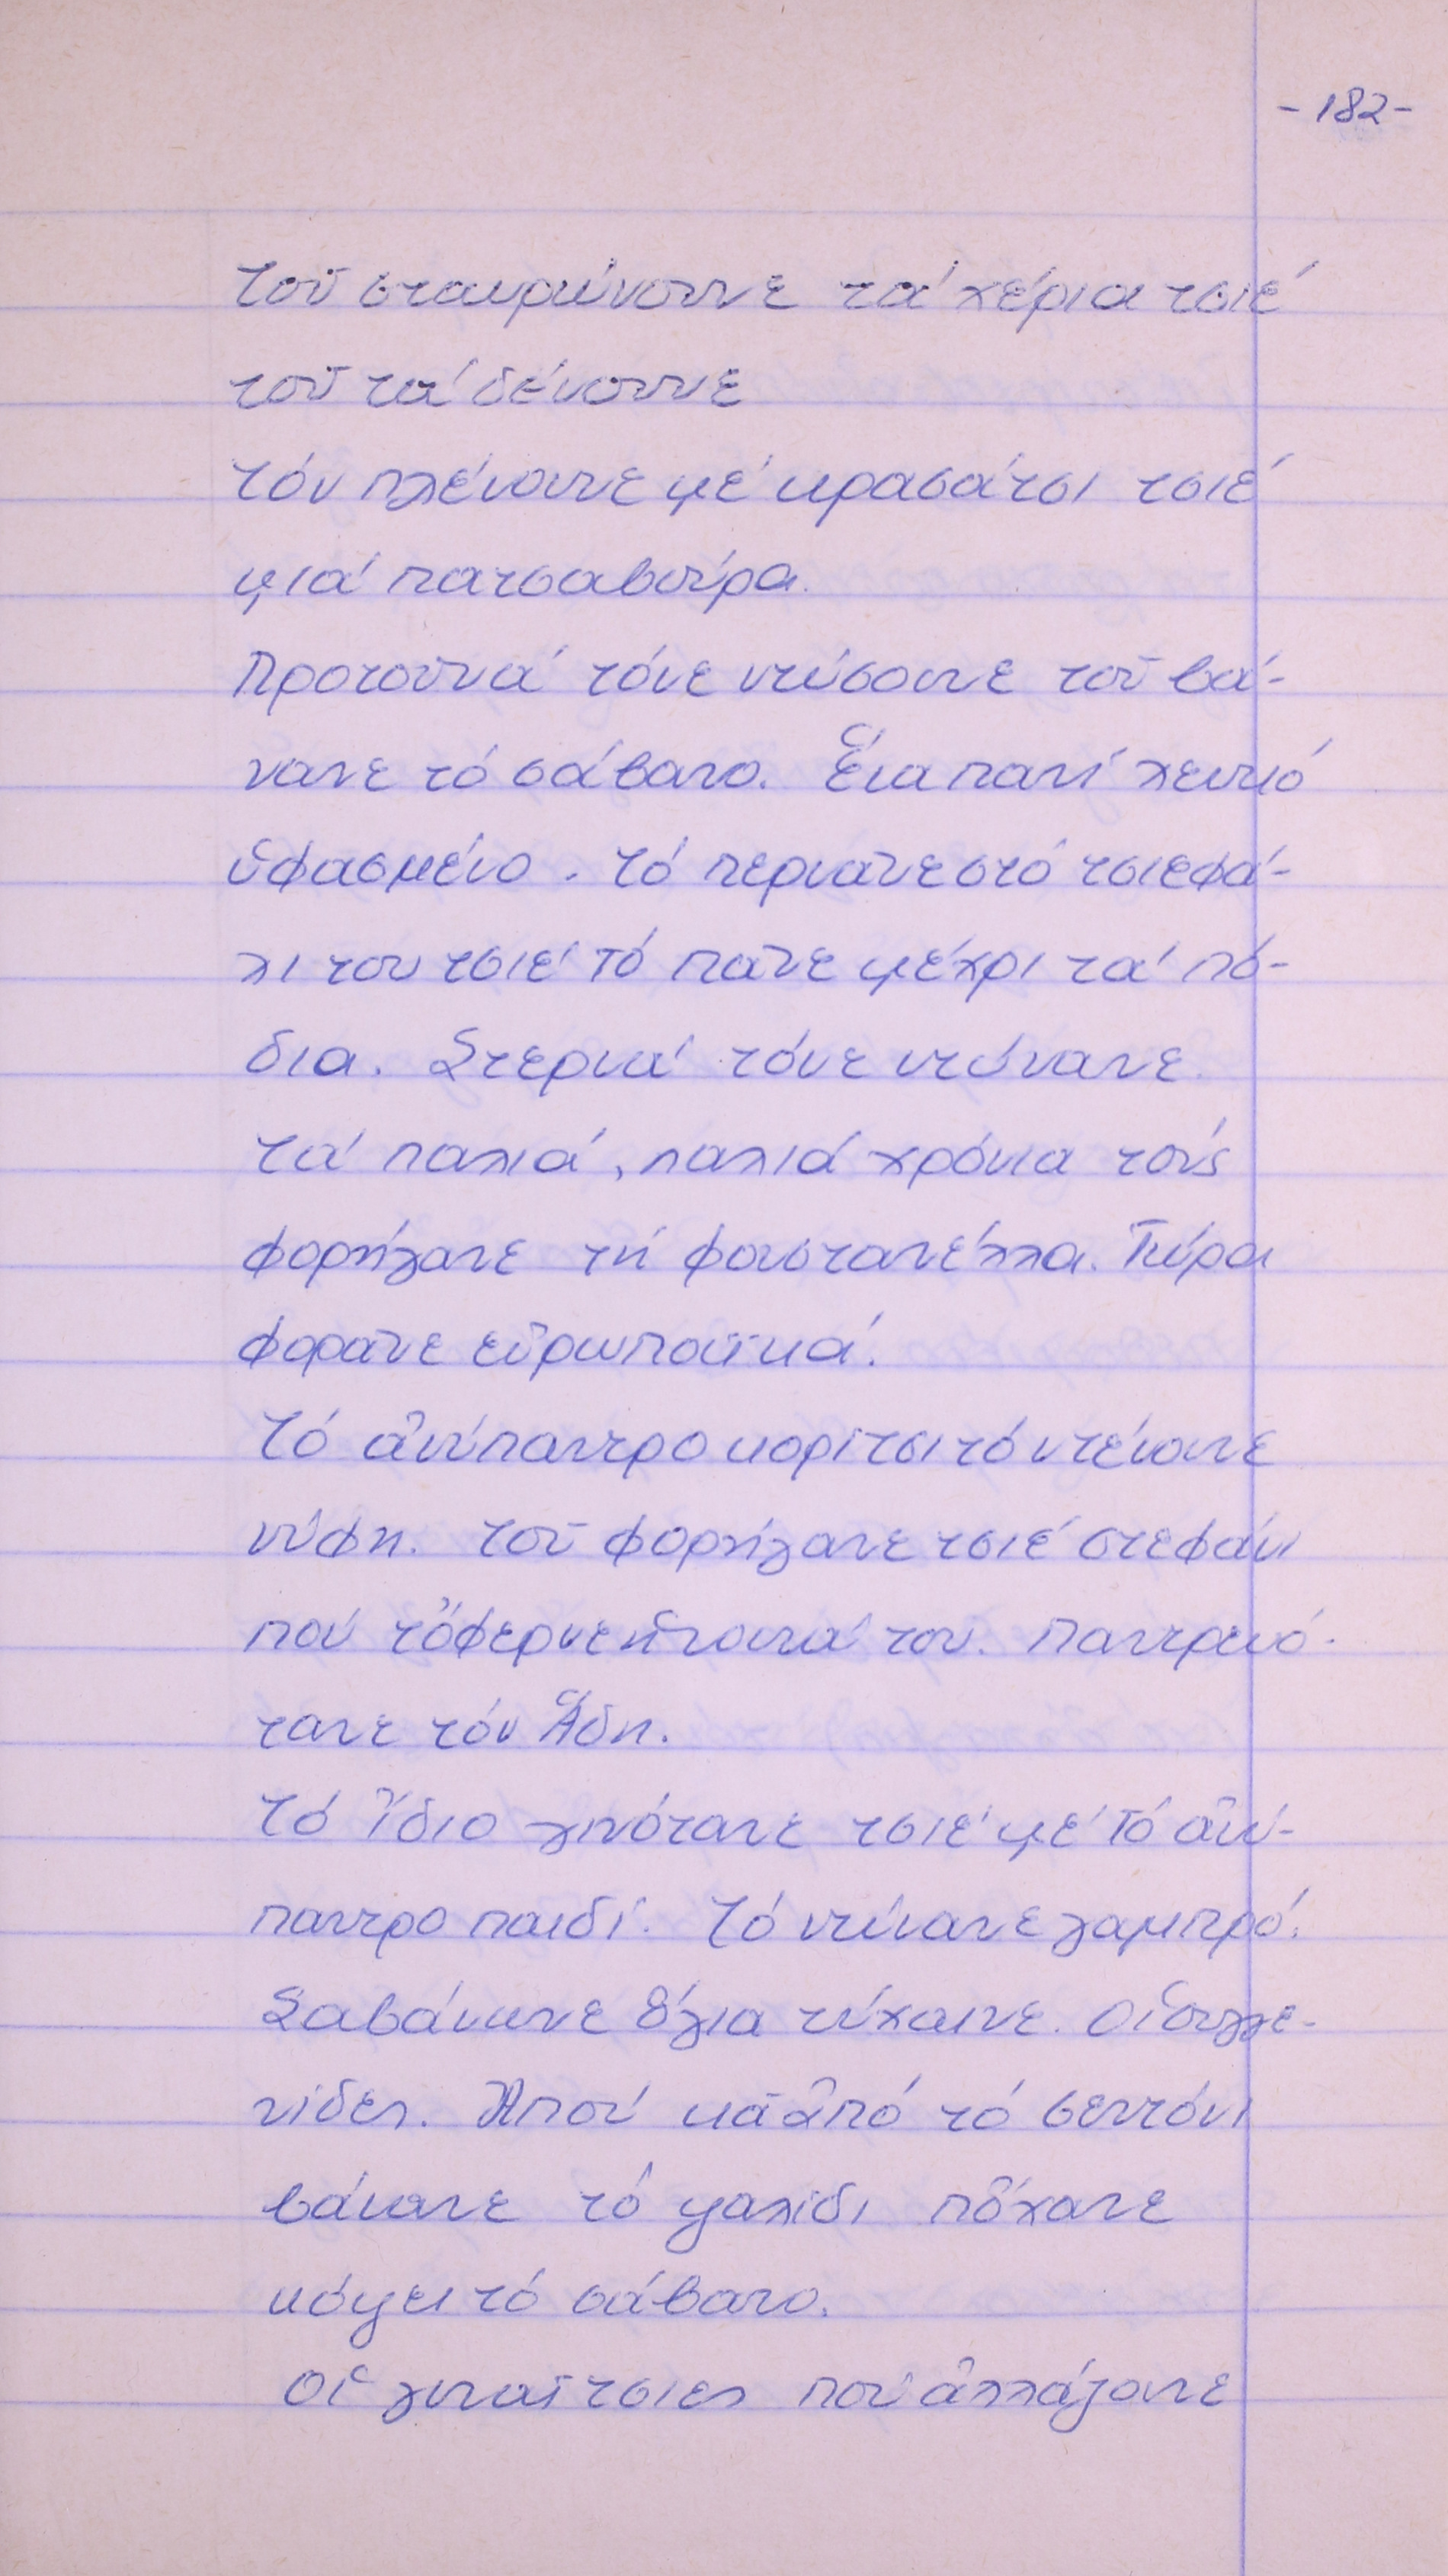 -182-
Τοῦ σταυρώνουνε τά χέρια τσιέ
τοῦ τά δένουνε
Τόν πλένουνε μέ κρασάτσι τσιέ
μιά πατσαβούρα.
Προτοῦνά τόνε ντύσουνε τοῦ βά-
νανε τό σάβανο. Ἕνα πανί λευκό
ὑφασμένο. Τό περνᾶνε στό τσιεφά-
λι του τσιέ τό πᾶνε μέχρι τά πό-
δια. Στερνά τόνε ντύνανε.
Τά παλιά, παλιά χρόνια τούς
φορήγανε τή φουστανέλλα. Τώρα
φορᾶνε εὐρωπαϊκά.
Τό ἀνύπαντρο κορίτσι τό ντένανε
νύφη. Τοῦ φορήγανε τσιέ στεφάνι
πού τὄφερνε ἡ νουνά του. Παντρευό-
τανε τόν Ἅδη.
Τό ἴδιο γινότανε τσιέ μέ τό ἀνύ-
παντρο παιδί. Τό ντύνανε γαμπρό.
Σαβάνωνε ὅγια τύχαινε. Οἱ συγγε-
νίδες. Ἀπού κᾶ ἀπό τό σεντόνι
βάνανε τό ψαλίδι πὄχανε
κόψει τό σάβανο.
Οἱ γυναῖτσιες πού ἀλλάζανε